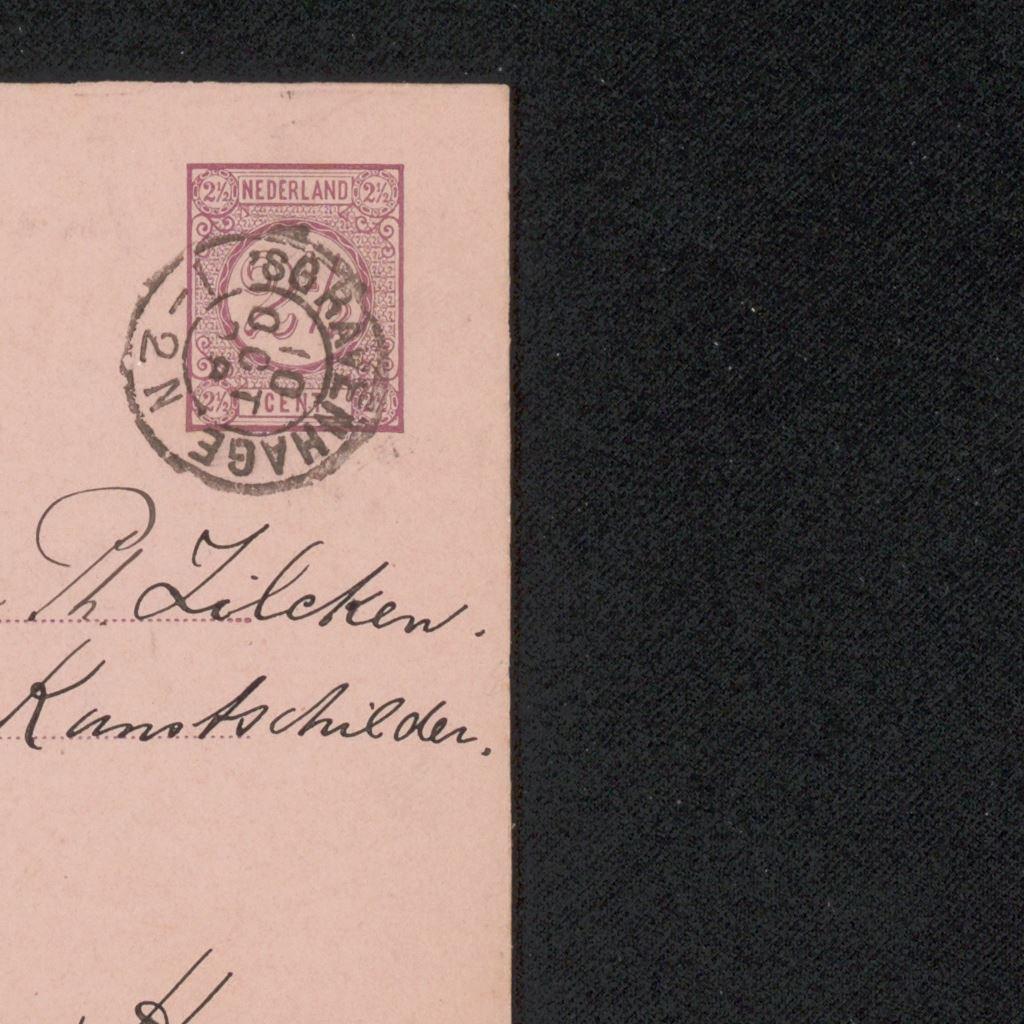 2½ NEDERLAND 2½
2½ CENT 2½
'SGRAVENHAGE
1 - 2 N
10 OCT
Ph. Zilcken.
Kunstschilder.